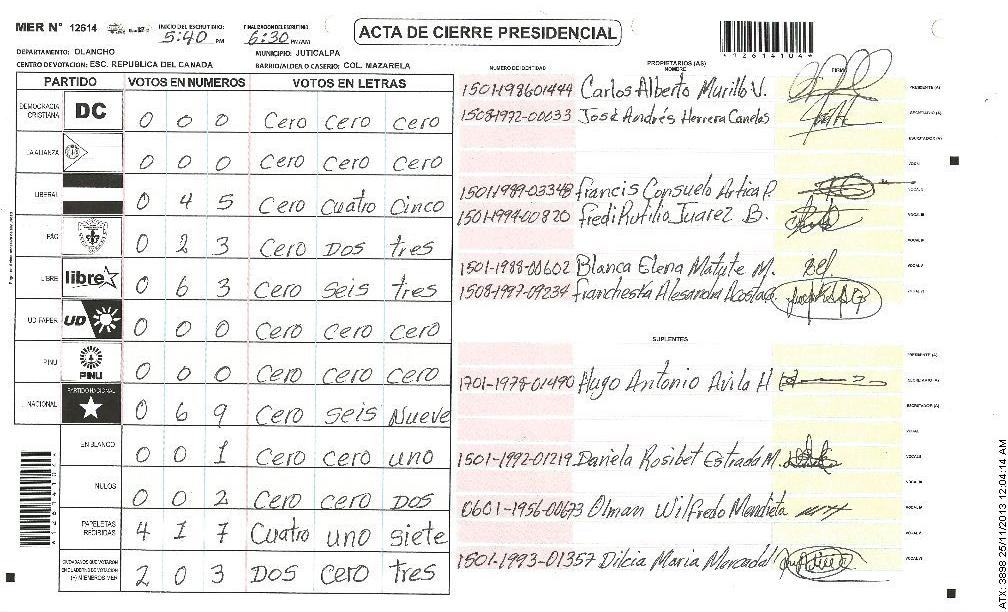 MER N° 12614 INICIO DEL ESCRUTINIO: 5:40 PM FINALIZACION DEL ESCRUTINIO: 6:30 PM/AM ACTA DE CIERRE PRESIDENCIAL
*12614104*
DEPARTAMENTO: OLANCHO MUNICIPIO: JUTICALPA
CENTRO DE VOTACION: ESC. REPUBLICA DEL CANADA BARRIO/ALDEA O CASERIO: COL. MAZARELA
PARTIDO VOTOS EN NUMEROS VOTOS EN LETRAS
DEMOCRACIA CRISTIANA DC 0 0 0 Cero Cero Cero
LA ALIANZA 0 0 0 Cero Cero Cero
LIBERAL 0 4 5 Cero Cuatro Cinco
PAC 0 2 3 Cero Dos tres
LIBRE libre 0 6 3 Cero seis tres
UD-FAPER UD 0 0 0 Cero Cero Cero
PINU PINU 0 0 0 Cero Cero Cero
NACIONAL PARTIDO NACIONAL 0 6 9 Cero seis Nueve
EN BLANCO 0 0 1 Cero Cero uno
NULOS 0 0 2 Cero Cero Dos
PAPELETAS RECIBIDAS 4 1 7 Cuatro uno siete
CIUDADANOS QUE VOTARON EN CUADERNO DE VOTACION (+) MIEMBROS MER 2 0 3 Dos Cero tres
NUMERO DE IDENTIDAD PROPIETARIOS (AS) NOMBRE FIRMA
1501-1986-01444 Carlos Alberto Murillo V. PRESIDENTE (A)
1508-1972-00033 José Andrés Herrera Canelas SECRETARIO (A)
ESCRUTADOR (A)
VOCAL I
1501-1989-03348 Francis Consuelo Artica P. VOCAL II
1501-1994-00820 Fredi Rutilio Juarez B. VOCAL III
VOCAL IV
1501-1988-00602 Blanca Elena Matute M. VOCAL V
1508-1997-09234 Francheska Alesandra Acosta G. VOCAL VI
SUPLENTES
PRESIDENTE (A)
1701-1978-01490 Hugo Antonio Avila H SECRETARIO (A)
ESCRUTADOR (A)
VOCAL I
1501-1992-01219 Daniela Rosibet Estrada M. VOCAL II
VOCAL III
0601-1956-00673 Olman Wilfredo Mendieta VOCAL IV
VOCAL V
1501-1993-01357 Dilcia Maria VOCAL VI
ATX: 3898 25/11/2013 12:04:14 AM